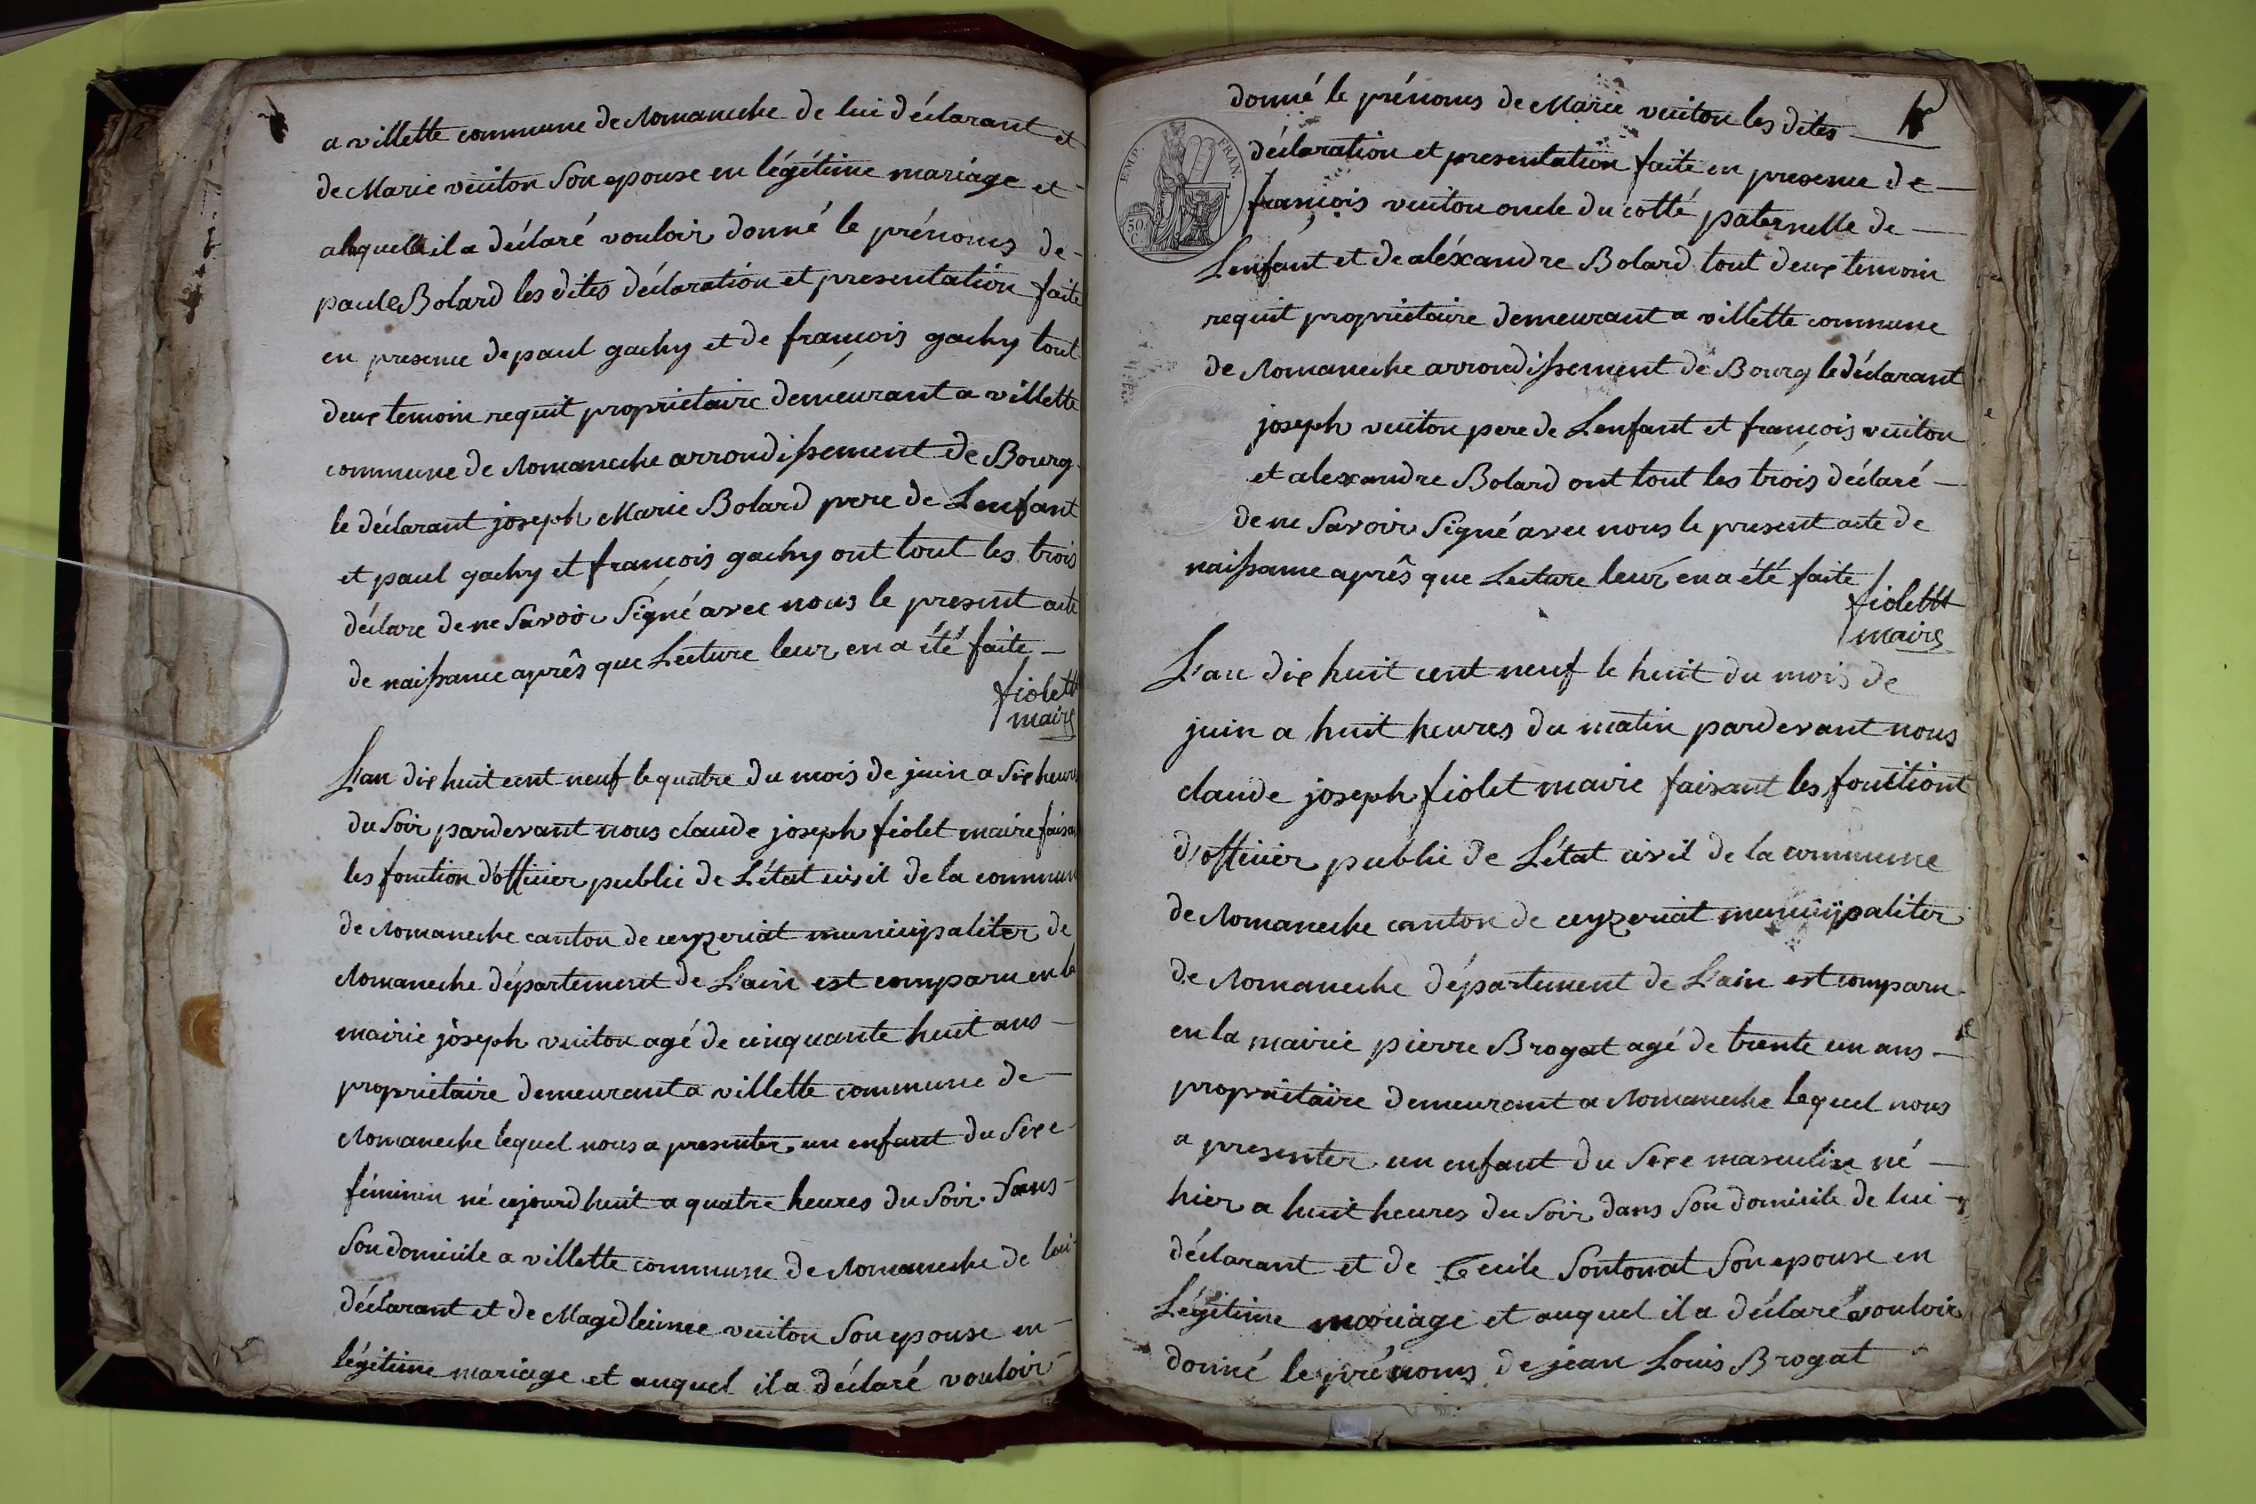 a villette commune de Romaneche de lui déclarant et
de Marie vuiton Son epouse en légitime mariage et
alaquelle il a déclaré vouloir donné le prénoms de
paule Bolard les dites déclaration et presentation faite
en presence de paul gachy et de francois gachy tout
deux temoin requit proprietaire demeurant a villette
commune de Romaneche arrondissement de Bourg
le déclarant joseph Marie Bolard pere de Lenfant
et paul gachy et francois gachy ont tout les trois
déclare de ne Savoir Signé avec nous le present acte
de naissance aprês que Lecture leur en a été faite
fiolett
maire
L'an dix huit cent neuf le quatre du mois de juin a Six heures
du Soir pardevant nous claude joseph fiolet maire faisan
les fonction d'officier public de L'état civil de la commun
de Romaneche canton de ceyzeriat municipaliter de
Romaneche département de L'ain est comparu en la
mairie joseph vuiton agé de cinquante huit ans
proprietaire demeurant a villette commune de
Romaneche lequel nous a presenter un enfant du Sexe
féminin né cejourdhuit a quatre heures du Soir dans
Son domicile a villette commune de Romaneche de lui
déclarant et de Magdleinee vuiton Son epouse en
légitime mariage et auquel il a déclaré vouloir
donné le prénoms de Marie vuiton les dites
EMP. FRAN.
50 C.
déclaration et presentation faite en presence de
francois vuiton oncle du cotté paternelle de
Lenfant et de aléxandre Bolard tout deux temoin
requit proprietaire demeurant a villette commune
de Romaneche arrondissement de Bourg le déclarant
joseph vuiton pere de Lenfant et francois vuiton
et alexandre Bolard ont tout les trois déclaré
de ne Savoir Signé avec nous le present acte de
naissance aprês que Lecture leur en a été faite
fiolett
maire
L'an dix huit cent neuf le huit du mois de
juin a huit heures du matin pardevant nous
claude joseph fiolet maire faisant les fonctiont
d'officier public de L'état civil de la commune
de Romaneche canton de ceyzeriat municipaliter
de Romaneche département de L'ain est comparu
en la mairie pierre Brogat agé de trente un ans
proprietaire demeurant a Romaneche lequel nous
a presenter un enfant du Sexe masculin né
hier a huit heures du Soir dans Son domicile de lui
déclarant et de Cecile Sontonat Son epouse en
Légitime mariage et auquel il a déclaré vouloir
donné le prénoms de jean Louis Brogat